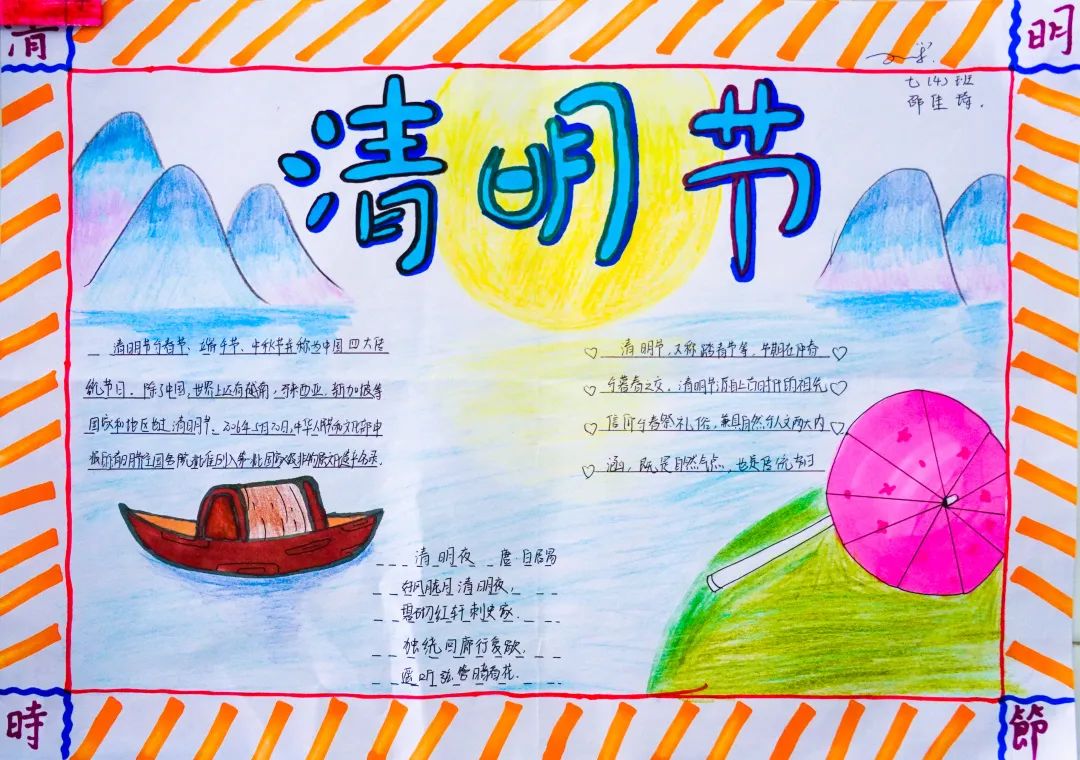 清
明
七(4)班
邵佳琦.
清明节
清明节与春节、端午节、中秋节并称为中国四大传
统节日。除了中国,世界上还有越南、马来西亚、新加坡等
国家和地区也过清明节。2006年5月20日,中华人民共和国文化部申
报的清明节经国务院批准列入第一批国家级非物质文化遗产名录。
清明节,又称踏青节等,节期在仲春
与暮春之交。清明节源自上古时代的祖先
信仰与春祭礼俗,兼具自然与人文两大内
涵,既是自然节点,也是传统节日
清明夜 唐·白居易
好风胧月清明夜,
碧砌红轩刺史家.
独绕回廊行复歇.
遥听弦管暗看花.
時
節